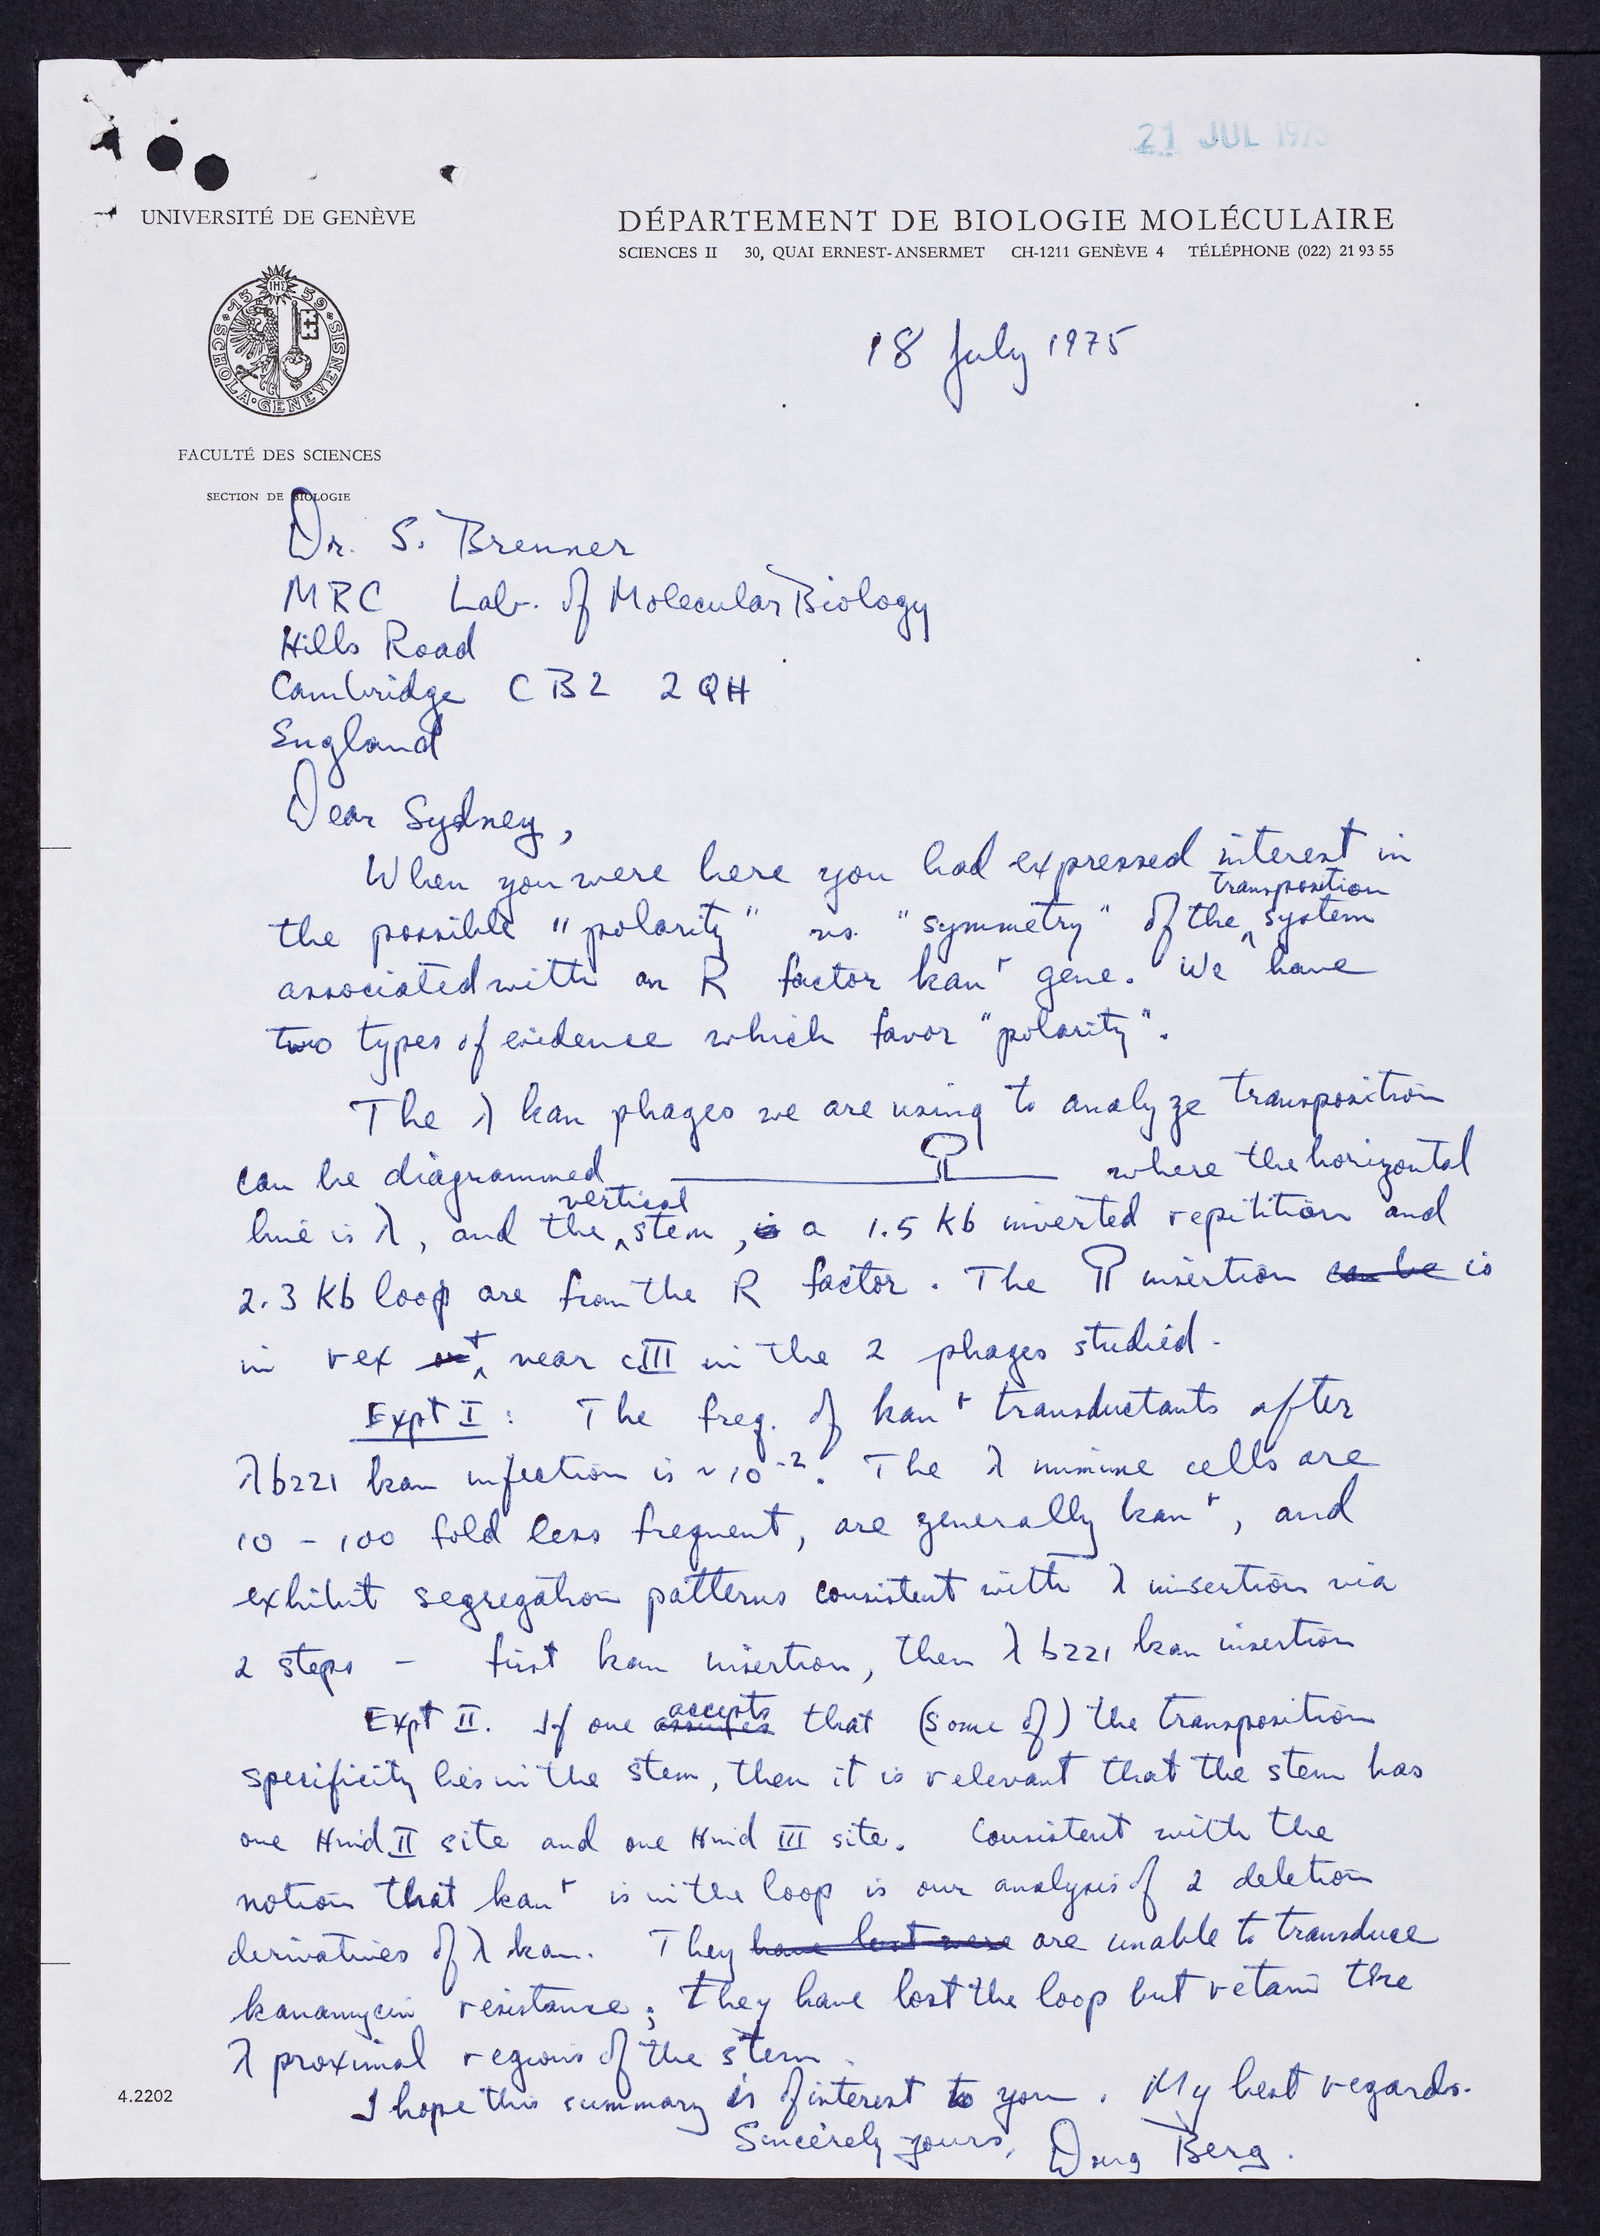 21 JUL 1975
UNIVERSITÉ DE GENÈVE
DÉPARTEMENT DE BIOLOGIE MOLÉCULAIRE
SCIENCES II 30, QUAI ERNEST-ANSERMET CH-1211 GENÈVE 4 TÉLÉPHONE (022) 21 93 55
SCHOLA·GENEVENSIS 1559 IHS
18 July 1975
FACULTÉ DES SCIENCES
SECTION DE BIOLOGIE
Dr. S. Brenner
MRC Lab. of Molecular Biology
Hills Road
Cambridge CB2 2QH
England
Dear Sydney,
When you were here you had expressed interest in
the possible "polarity" vs. "symmetry" of the transposition system
associated with an R factor kan r gene. We have
two types of evidence which favor "polarity".
The λ kan phages we are using to analyze transposition
can be diagrammed where the horizontal
line is λ, and the vertical stem, is a 1.5 Kb inverted repitition and
2.3 Kb loop are from the R factor. The insertion can be is
in rex or + near cIII in the 2 phages studied.
Expt I: The freq. of kan r transductants after
λb221 kan infection is ~10-2. The λ immune cells are
10 - 100 fold less frequent, are generally kan r, and
exhibit segregation patterns consistent with λ insertion via
2 steps - first kan insertion, then λ b221 kan insertion
Expt II. If one assumes accepts that (some of) the transposition
specificity lies in the stem, then it is relevant that the stem has
one Hind II site and one Hind III site. Consistent with the
notion that kan r is in the loop is our analysis of 2 deletion
derivatives of λ kan. They have lost were are unable to transduce
kanamycin resistance; they have lost the loop but retain the
λ proximal regions of the stem.
I hope this summary is of interest to you. My best regards.
Sincerely yours, Doug Berg.
4.2202